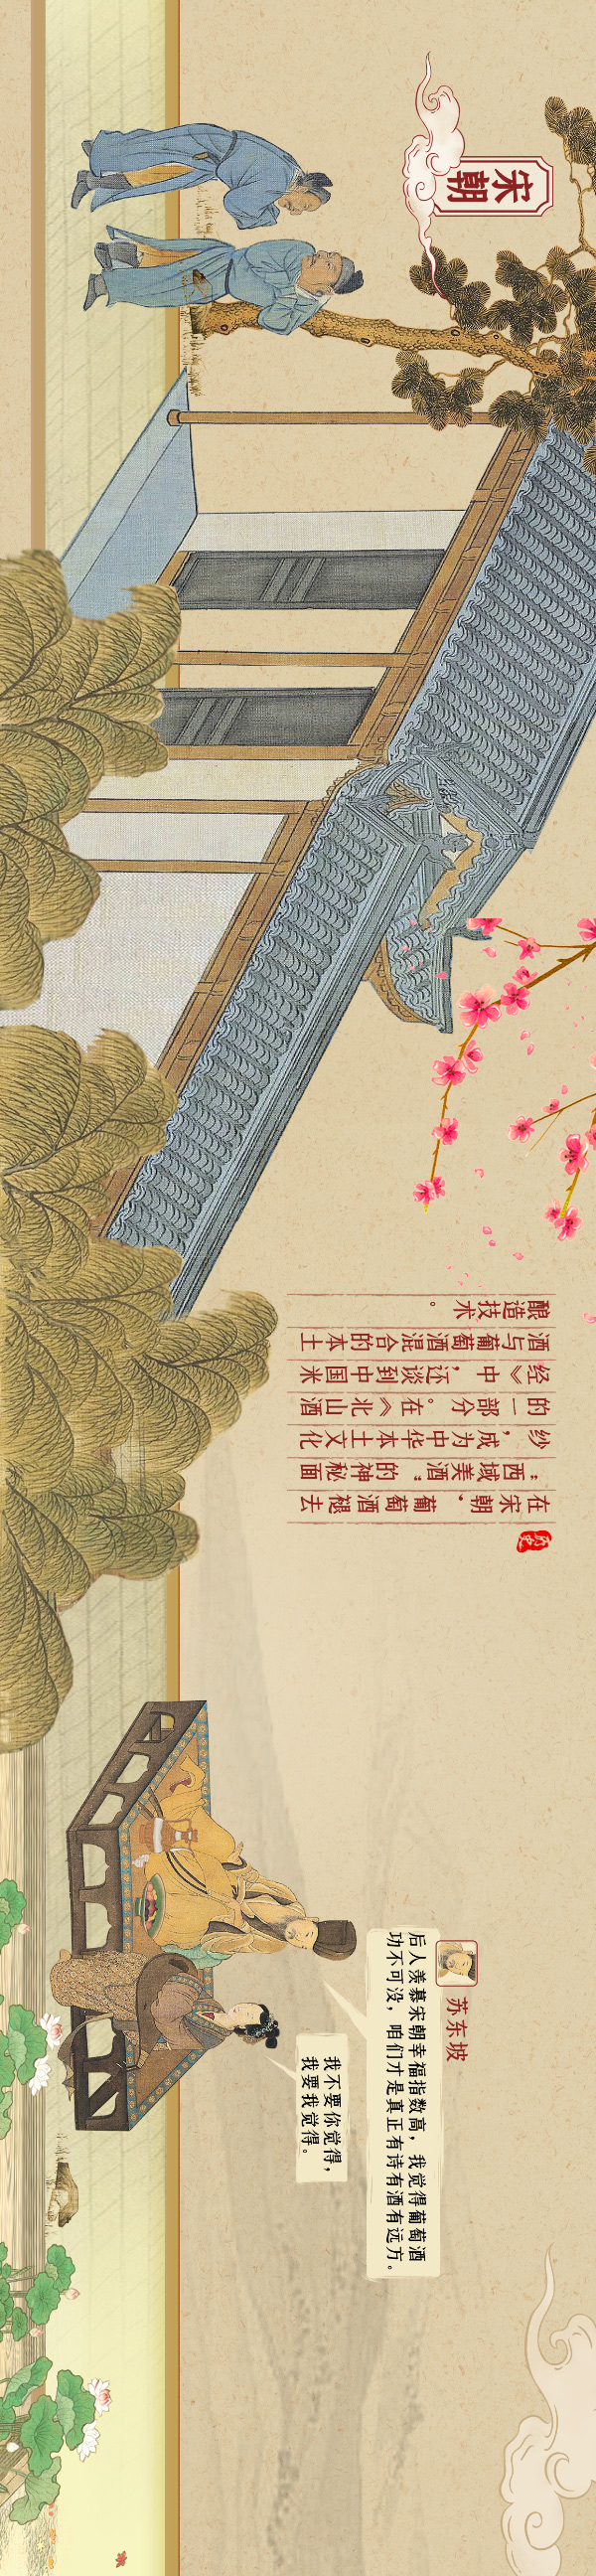 宋朝
在宋朝，葡萄酒褪去
“西域美酒”的神秘面
纱，成为中华本土文化
的一部分。在《北山酒
经》中，还谈到中国米
酒与葡萄酒混合的本土
酿造技术。
苏东坡
后人羡慕宋朝幸福指数高，我觉得葡萄酒
功不可没，咱们才是真正有诗有酒有远方。
我不要你觉得，
我要我觉得。